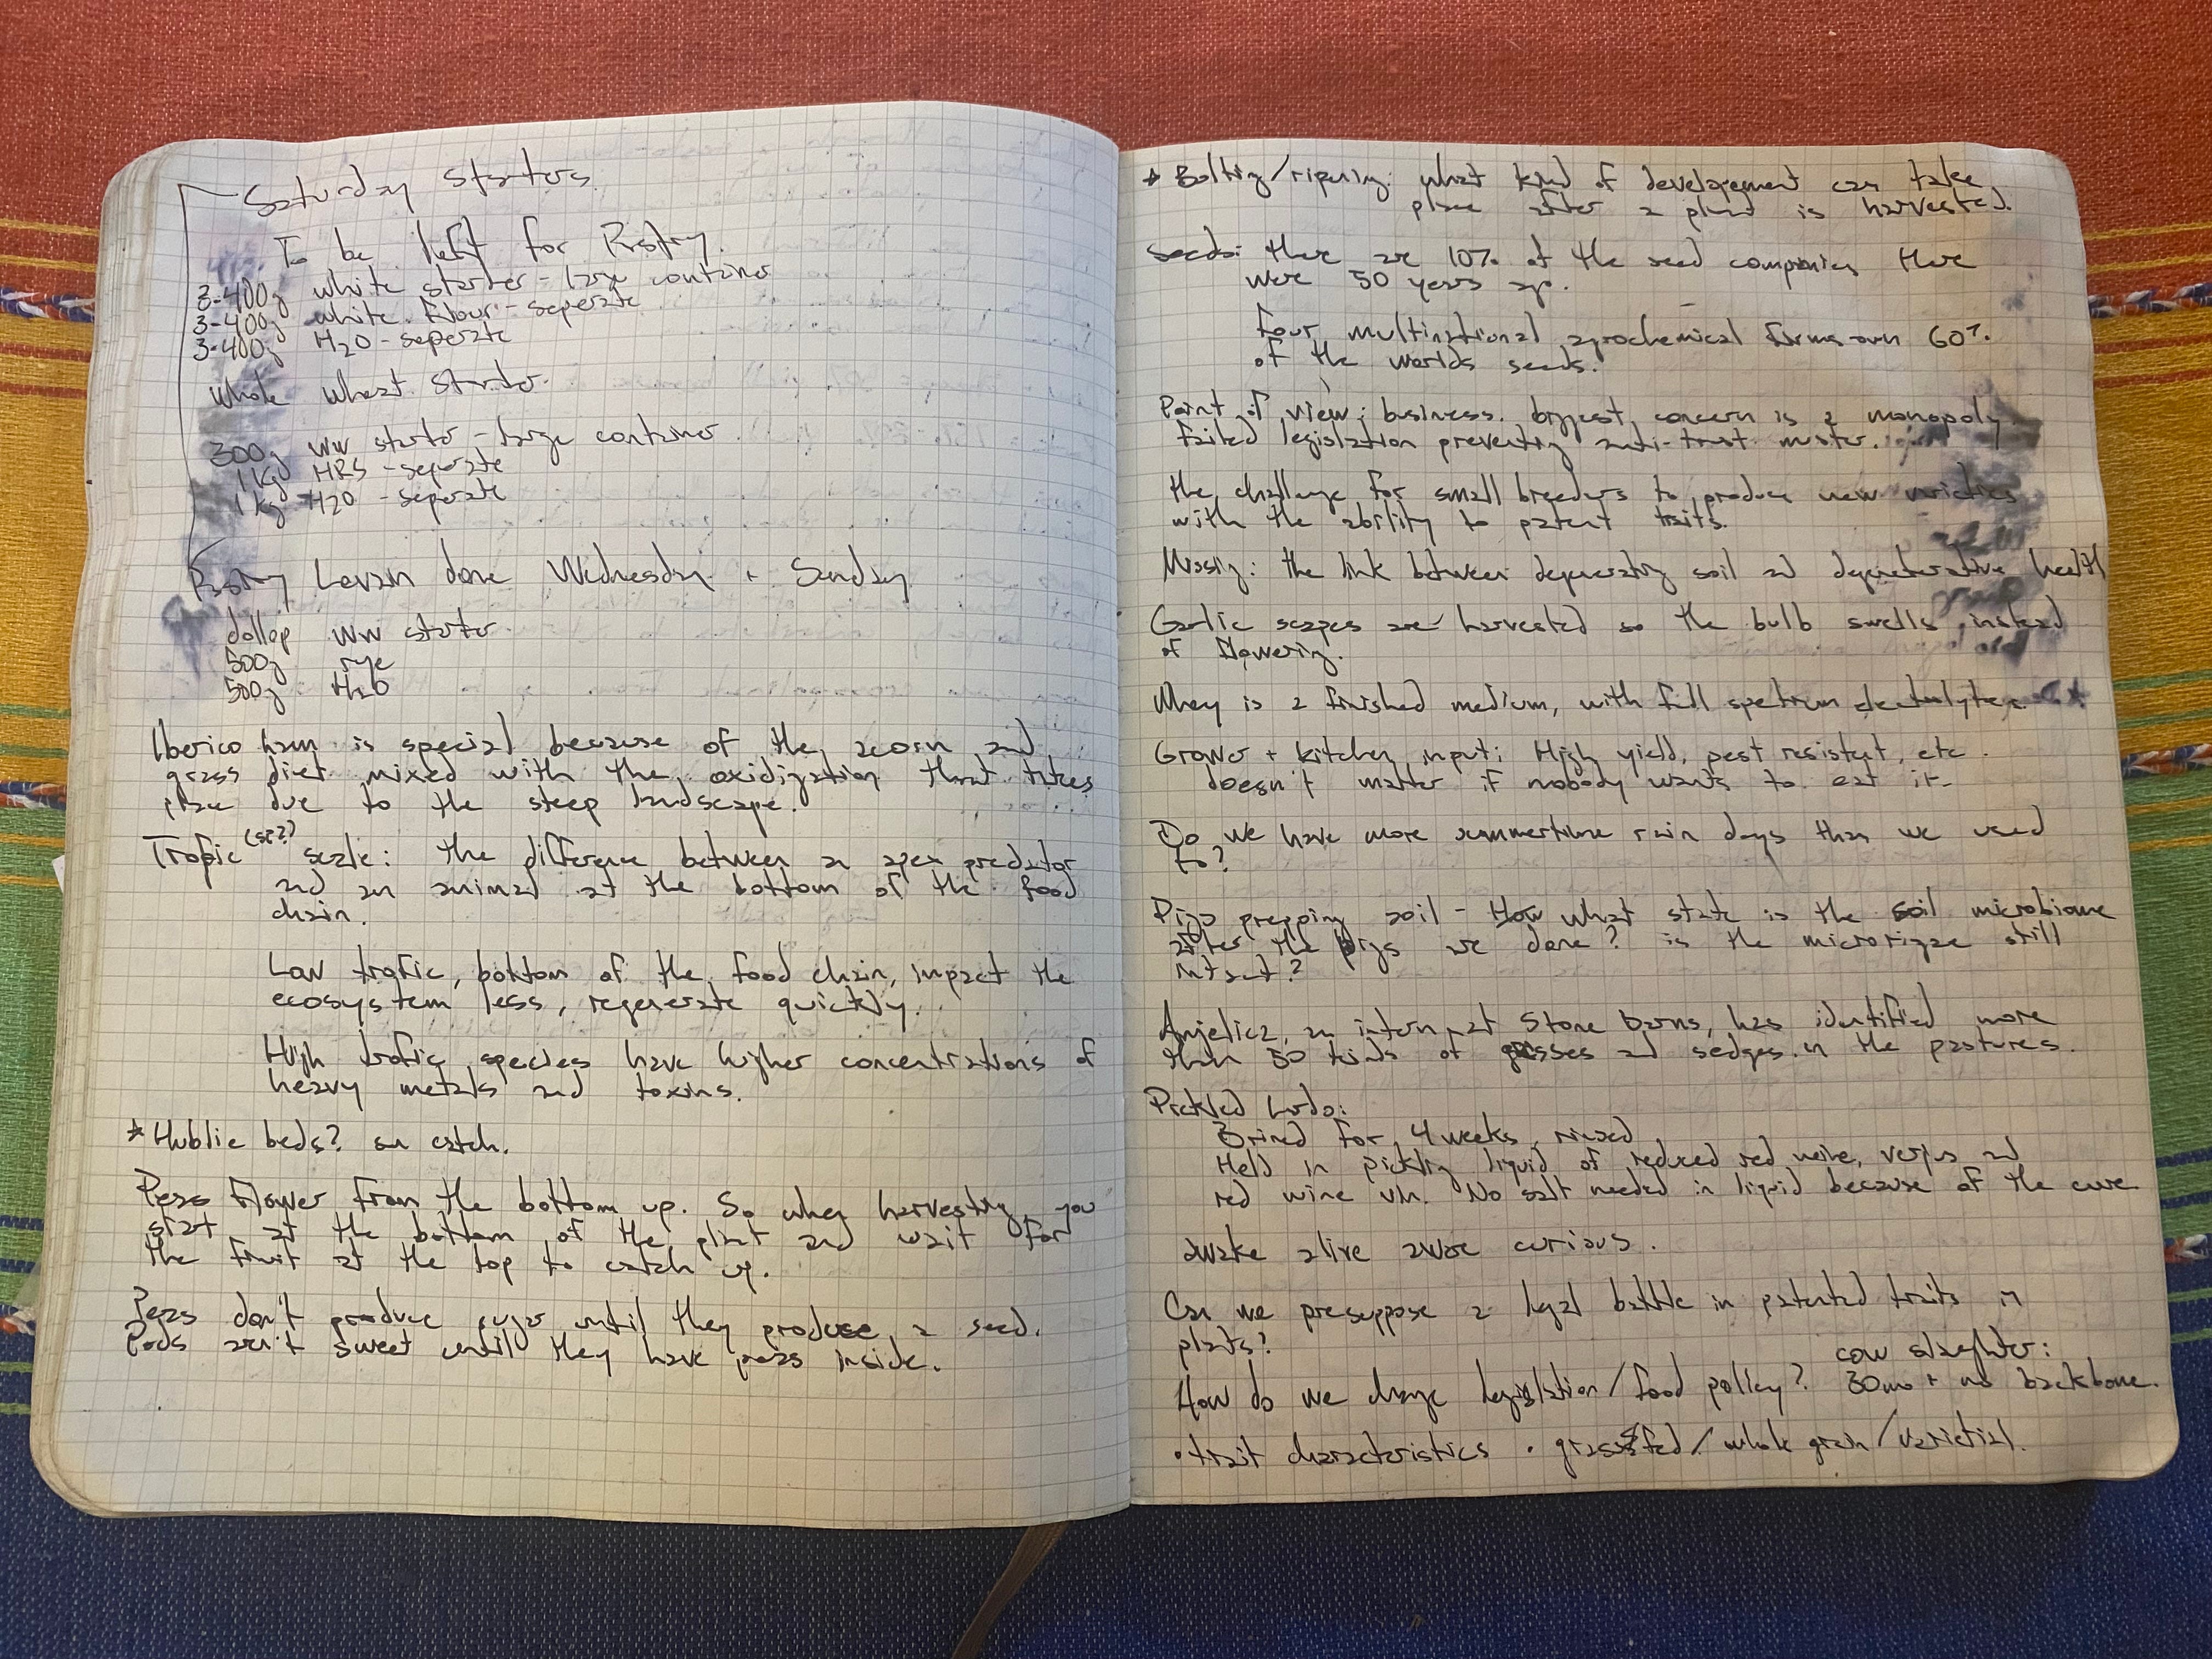 Saturday Starters
To be left for Pastry.
3-400g white starter - large container
3-400g white flour - seperate
3-400g H2O - seperate
Whole wheat starter.
300g WW starter - large container
1kg HRS - seperate
1kg H2O - seperate
Pastry Levain done Wednesday + Sunday
dollop WW starter.
500g rye
500g H2O
Iberico ham is special because of the acorn and
grass diet mixed with the oxidization that takes
place due to the steep landscape.
Trofic (sp?) scale: the difference between an apex predator
and an animal at the bottom of the food
chain.
Low trofic, bottom of the food chain, impact the
ecosystem less, regenerate quickly.
High trofic species have higher concentrations of
heavy metals and toxins.
* Hublic beds? sun catch.
Peas flower from the bottom up. So when harvesting, you
start at the bottom of the plant and wait for
the fruit at the top to catch up.
Peas don't produce sugar until they produce a seed.
Pods aren't sweet until they have peas inside.
* Bolting/ripening: what kind of developement can take
place after a plant is harvested.
Seeds: there are 10% of the seed companies there
were 50 years ago.
Four multinational agrochemical firms own 60%
of the worlds seeds.
Point of view: business. biggest concern is a monopoly
failed legislation preventing anti-trust muster.
the challenge for small breeders to produce new varieties
with the ability to patent traits.
Missing: the link between degenerating soil and degenerative health
Garlic scapes are harvested so the bulb swells instead
of flowering.
Whey is a finished medium, with full spectrum electrolytes.
Grower + kitchen input: High yield, pest resistent, etc.
doesn't matter if nobody wants to eat it.
Do we have more summertime rain days than we used
to?
Pigs prepping soil - How what state is the soil microbiome
after the pigs are done? is the microrizae still
intact?
Anjelica, an intern at Stone barns, has identified more
than 50 kinds of grasses and sedges in the pastures.
Pickled Lardo:
Brined for 4 weeks, rinsed
Held in pickling liquid of reduced red wine, verjus and
red wine vin. No salt needed in liquid because of the cure
awake alive aware curious.
Can we presuppose a legal battle in patented traits in
plants?
cow slaughter:
How do we change legislation/food policy? 30mo + no backbone.
• trait characteristics • grassfed/whole grain/varietial.